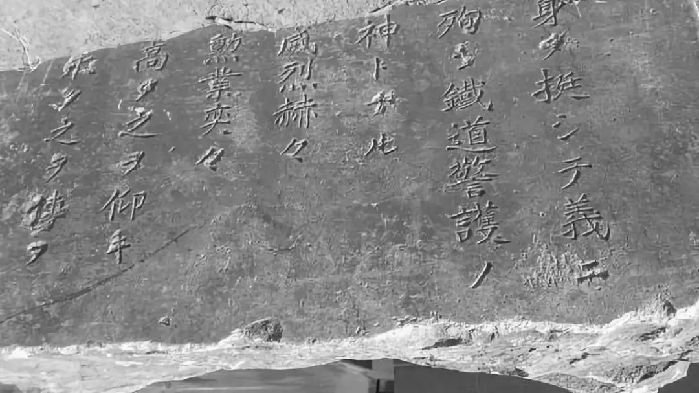 身ヲ挺シテ義ニ
殉ヲ鐵道警護ノ
神ト成ル
威烈赫々
勲業奕々
高ク之ヲ仰キ
ク之ヲ傳ヲ